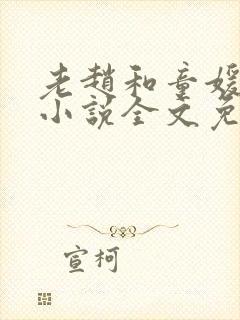 老赵和童媛
小说全文免
宣柯